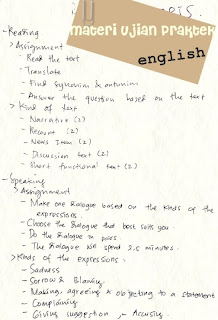 materi ujian praktek
english
- Reading
> Assignment
- Read the text
- Translate
- Find synonim & antonim
- Answer the question based on the text
> Kind of text
- Narrative (2)
- Recount (2)
- News Item (2)
- Discussion text (2)
- Short functional text (2)
- Speaking
> Assignment
- Make one dialogue based on the kinds of the
expressions.
- Choose the dialogue that best suits you.
- Do the dialogue in pairs
- The dialogue will spend 2,5 minutes.
> Kinds of the expressions :
- Sadness
- Sorrow & Blaming
- Making, agreeing & objecting to a statement
- Complaining
- Giving suggestion, - Accusing